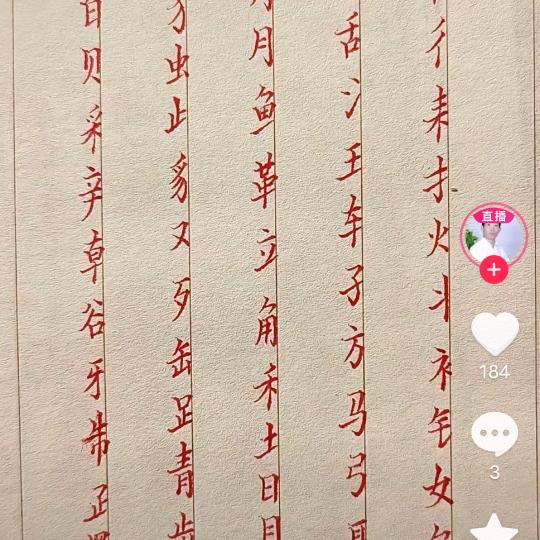 彳耒扌火丬衤钅女
舌冫王车子方马弓
月鱼革立角禾土日月
虫止豸又歹缶足青
贝采辛卓谷牙
直播
184
3